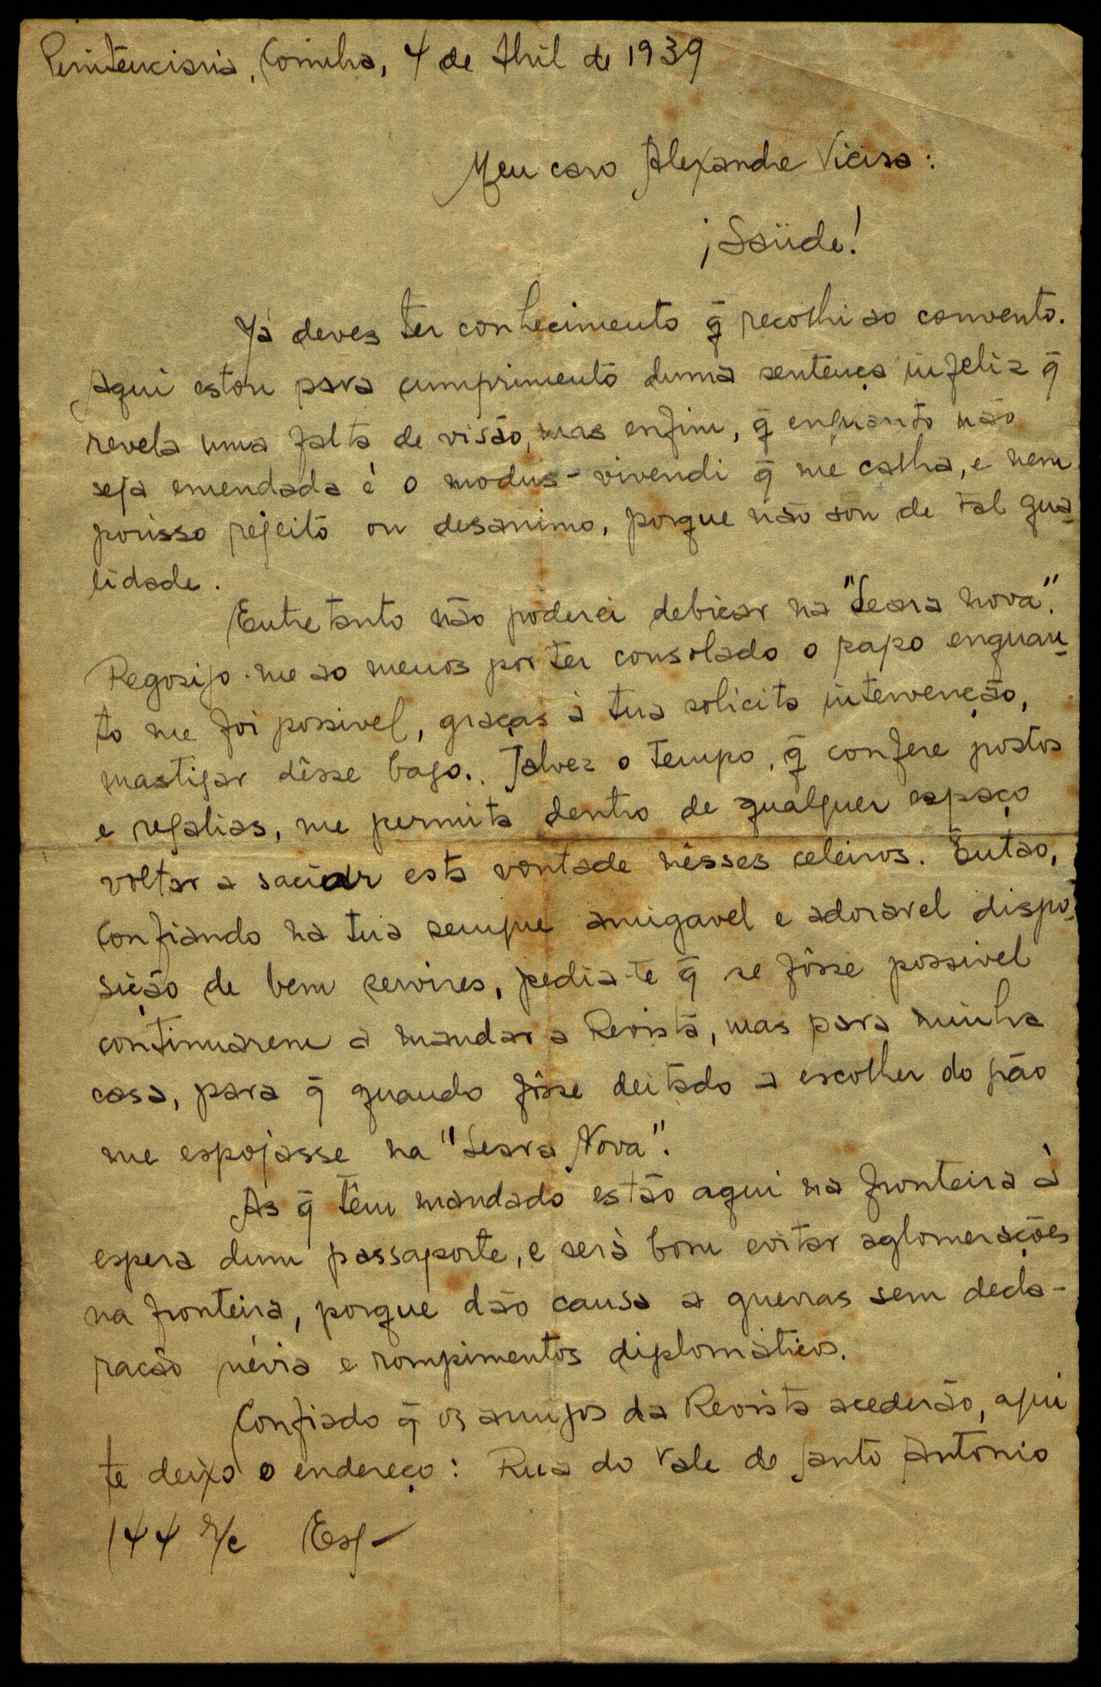 Penitenciaria, Coimbra, 4 de Abril de 1939
Meu caro Alexandre Vieira:
¡Saüde!
Já deves ter conhecimento q̃ recolhi ao convento.
Aqui estou para cumprimento duma sentença infeliz q̃
revela uma falta de visão, mas enfim, q̃ enquanto não
seja emendada é o modus-vivendi q̃ me calha, e nem
porisso rejeito ou desanimo, porque não sou de tal qua-
lidade.
Entretanto não poderei debicar na "Seara nova".
Regosijo-me ao menos por ter consolado o papo enquan-
to me foi possivel, graças à tua solicita intervenção,
mastigar dêsse bago. Talvez o tempo, q̃ confere postos
e regalias, me permita dentro de qualquer espaço
voltar a saciar esta vontade nêsses celeiros. Então,
confiando na tua sempre amigavel e adoravel dispo-
sição de bem servires, pedia-te q̃ se fôsse possivel
continuarem a mandar a Revista, mas para minha
casa, para q̃ quando fôsse deitado a escolher do pão
me espojasse na "Seara Nova".
As q̃ têm mandado estão aqui na fronteira à
espera dum passaporte, e será bom evitar aglomerações
na fronteira, porque dão causa a guerras sem decla-
ração prévia e rompimentos diplomáticos.
Confiado q̃ os amigos da Revista acederão, aqui
te deixo o endereço: Rua do Vale de Santo Antonio
144 r/c Esq-